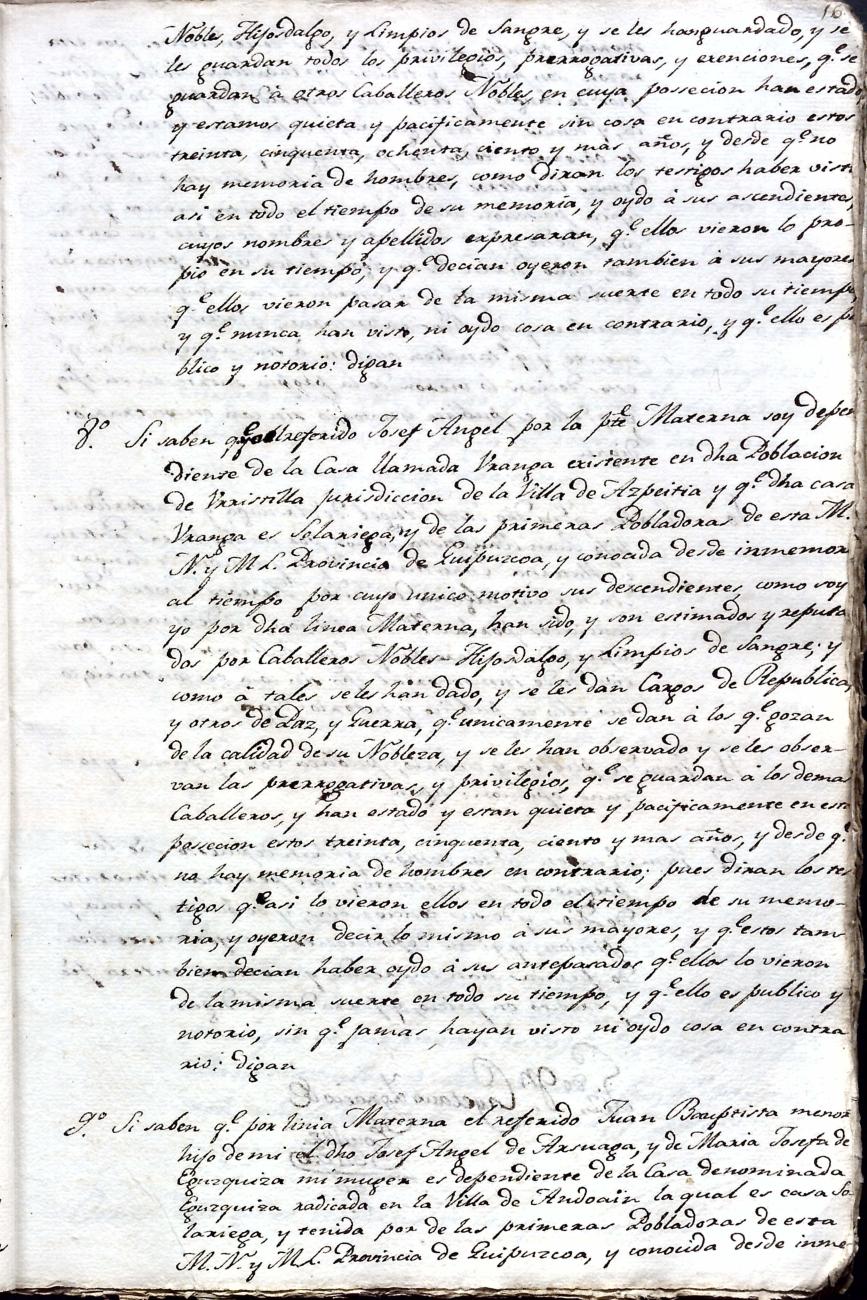 16
Nobles, Hijosdalgo, y Limpios de Sangre, y se les han guardado, y se
les guardan todos los privilegios, prerrogativas, y exenciones, q.e se
guardan à otros Caballeros Nobles, en cuya possecion han estado
y estamos quieta y pacificamente sin cosa en contrario estos
treinta, cinquenta, ochenta, ciento y mas años, y desde q.e no
hay memoria de hombres, como diran los testigos haber visto
asi en todo el tiempo de su memoria, y oydo à sus ascendientes,
cuyos nombres y apellidos expresaran, q.e ellos vieron lo pro-
pio en su tiempo, y q.e decian oyeron tambien à sus mayores
q.e ellos vieron pasar de la misma suerte en todo su tiempo,
y q.e nunca han visto, ni oydo cosa en contrario, y q.e ello es pu
blico y notorio: digan
8.o Si saben q.e yo el referido Josef Angel por la p.te Materna soy depen
diente de la Casa llamada Vranga existente en dha Poblacion
de Vrristilla jurisdiccion de la Villa de Azpeitia y q.e dha casa
Vranga es Solariega, y de las primeras Pobladoras de esta M.
N. y M L. Provincia de Guipuzcoa, y conocada desde inmemori
al tiempo por cuyo unico motivo sus descendientes, como soy
yo por dha linea Materna, han sido, y son estimados y reputa
dos por Caballeros Nobles Hijosdalgo, y Limpios de Sangre; y
como à tales se les han dado, y se les dan Cargos de Republica,
y otros de Paz, y Guerra, q.e unicamente se dan à los q.e gozan
de la calidad de su Nobleza, y se les han observado y se les obser-
van las prerrogativas, y privilegios, q.e se guardan à los demas
Caballeros, y han estado y estan quieta y pacificamente en esta
possecion estos treinta, cinquenta, ciento y mas años, y desde q.e
no hay memoria de hombres en contrario; pues diran los tes
tigos q.e asi lo vieron ellos en todo el tiempo de su memo-
ria, y oyeron decir lo mismo à sus mayores, y q.e estos tam
bien decian haber oydo à sus antepasados q.e ellos lo vieron
de la misma suerte en todo su tiempo, y q.e ello es publico y
notorio, sin q.e jamas hayan visto ni oydo cosa en contra
rio: digan
9.o Si saben q.e por linia Materna el referido Juan Bauptista menor
hijo de mi el dho Josef Angel de Arsuaga, y de Maria Josefa de
Eguzquiza mi muger es dependiente de la Casa denominada
Eguzquiza radicada en la Villa de Andoain la qual es casa So
lariega, y tenida por de las primeras Pobladoras de esta
M. N. y M L. Provincia de Guipuzcoa, y conocida desde inme